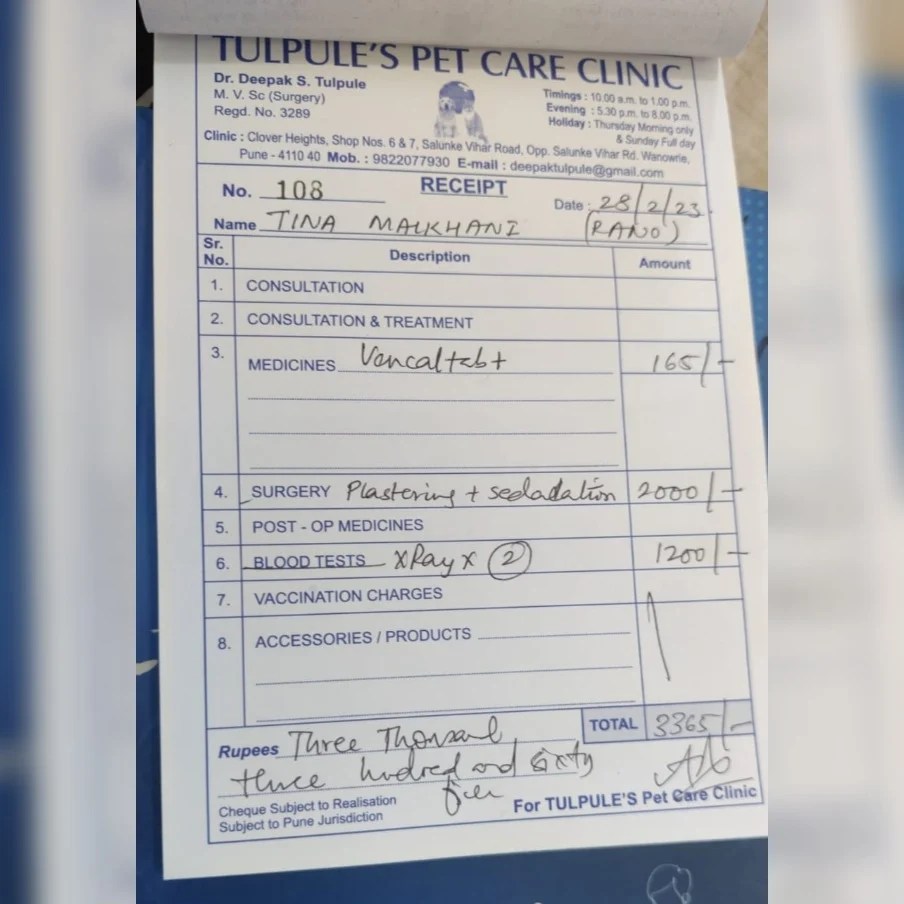 TULPULE'S PET CARE CLINIC
Dr. Deepak S. Tulpule
M. V. Sc (Surgery)
Regd. No. 3289
Timings : 10.00 a.m. to 1.00 p.m.
Evening : 5.30 p.m. to 8.00 p.m.
Holiday : Thursday Morning only
& Sunday Full day
Clinic : Clover Heights, Shop Nos. 6 & 7, Salunke Vihar Road, Opp. Salunke Vihar Rd. Wanowrie,
Pune - 4110 40 Mob. : 9822077930 E-mail : deepaktulpule@gmail.com
RECEIPT
No. 108 Date : 28/2/23
Name TINA MALKHANI (RANO)
Sr. No. Description Amount
1. CONSULTATION
2. CONSULTATION & TREATMENT
3. MEDICINES 165/-
4. SURGERY Plastering + sedadation 2000/-
5. POST - OP MEDICINES
6. BLOOD TESTS XRay x 2 1200/-
7. VACCINATION CHARGES
8. ACCESSORIES / PRODUCTS
TOTAL 3365/-
Rupees Three Thousand
three hundred and sixty
Cheque Subject to Realisation
Subject to Pune Jurisdiction
For TULPULE'S Pet Care Clinic